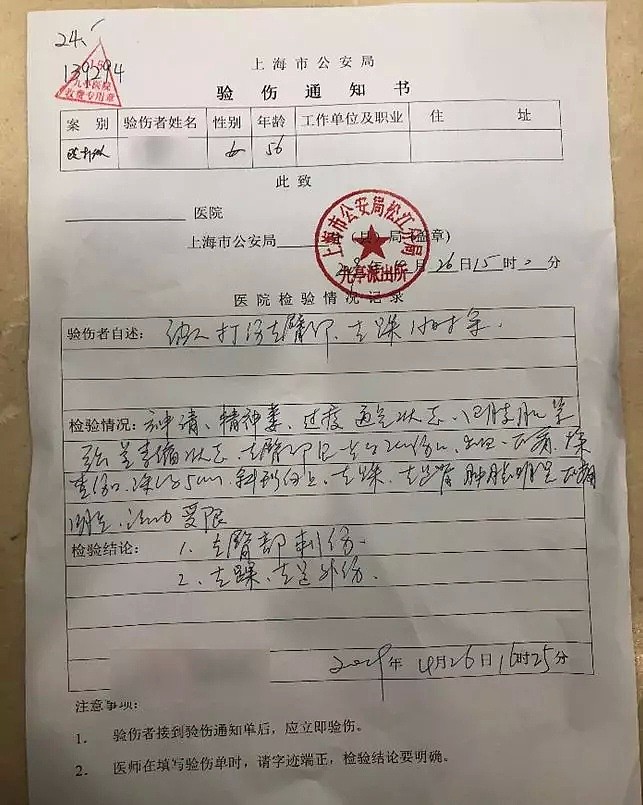 24.5
139294
九亭医院
收费专用章
上海市公安局
验伤通知书
案别 验伤者姓名 性别 年龄 工作单位及职业 住址
女 56
此致
医院
上海市公安局 (县)局(盖章)
上海市公安局松江分局
九亭派出所
年 月26日15时 分
医院检验情况记录
验伤者自述: 被人打伤左臀部、左踝1小时余
检验情况: 神清、精神萎、过度通气状态、四肢肌
左臀部见一长约2cm伤口、出血
伤口、深约5cm、斜形向上、左踝、左足背肿胀明显
活动受限
检验结论: 1、左臀部刺伤
2、左踝、左足外伤
年4月26日16时25分
注意事项:
1. 验伤者接到验伤通知单后,应立即验伤。
2. 医师在填写验伤单时,请字迹端正,检验结论要明确。